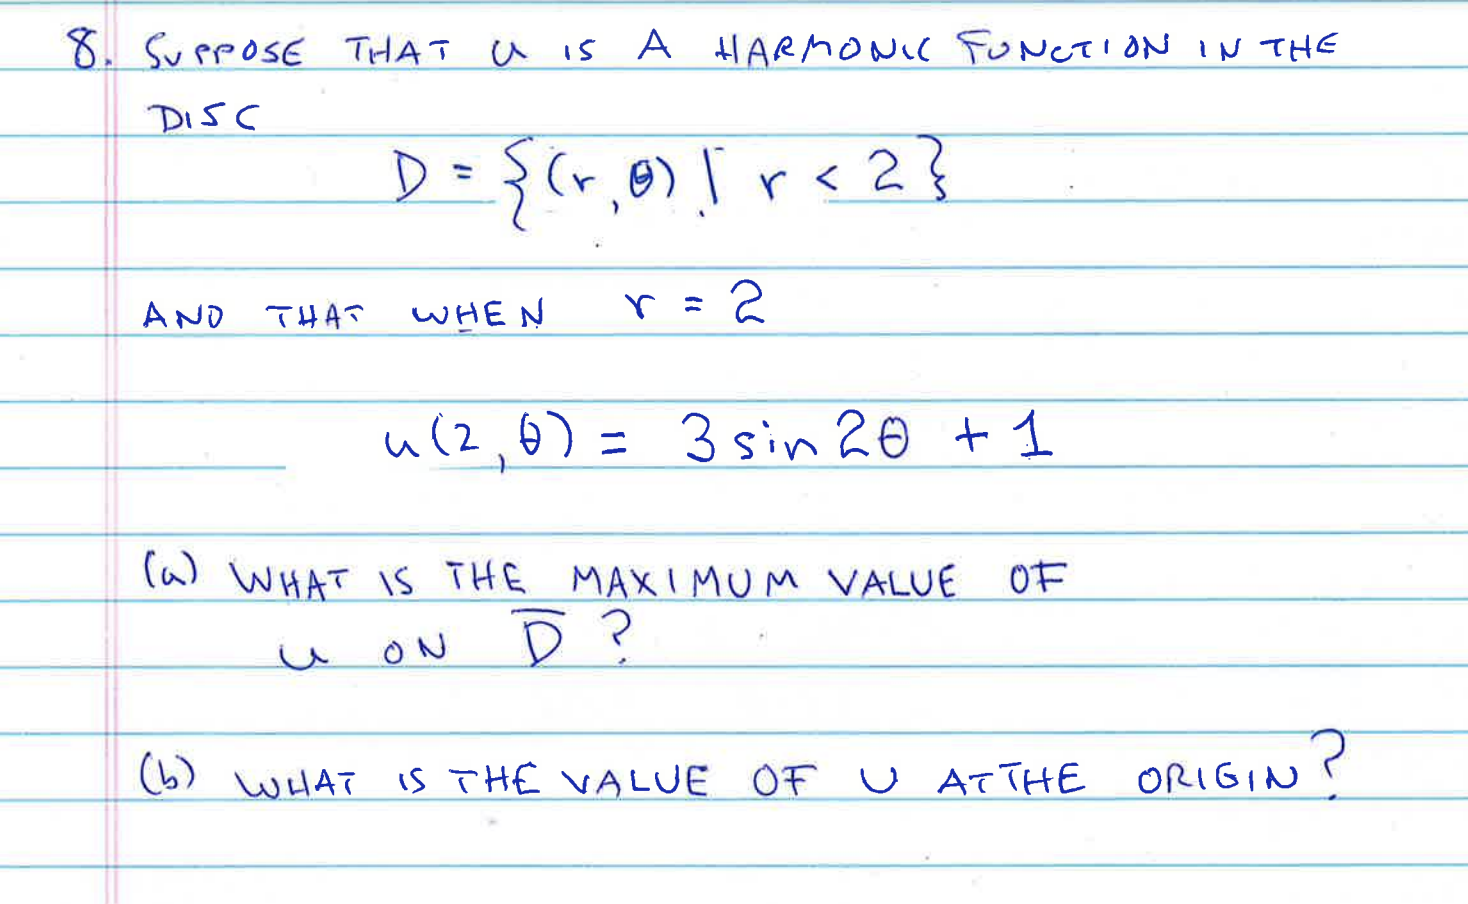 8. SUPPOSE THAT u IS A HARMONIC FUNCTION IN THE
DISC
D = {(r, θ) | r < 2}
AND THAT WHEN r = 2
u(2, θ) = 3 sin 2θ + 1
(a) WHAT IS THE MAXIMUM VALUE OF
u ON D̅ ?
(b) WHAT IS THE VALUE OF U AT THE ORIGIN?